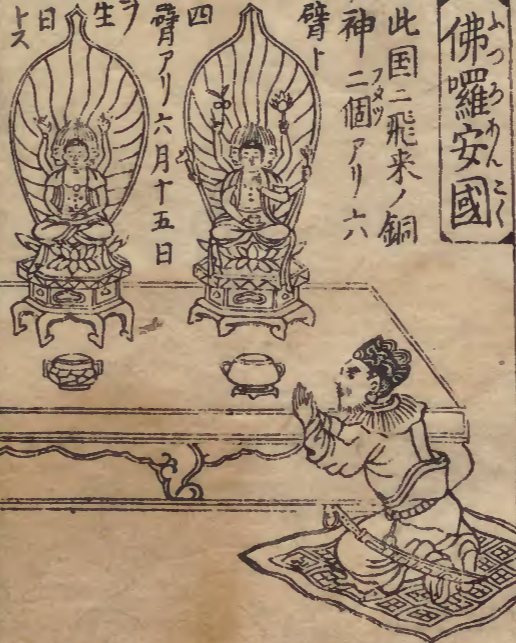 佛囉安國
ふつらあんこく
此国ニ飛来ノ銅
神二個アリ六
フタツ
臂ト
四
臂アリ六月十五日
ヲ
生
日
トス